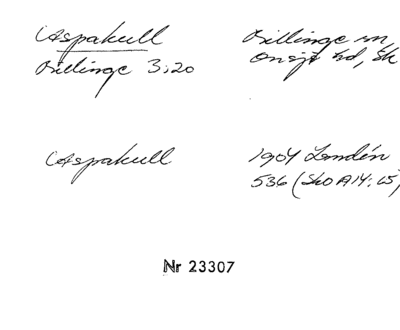 Aspakull
Billinge 3:20
Billinge sn,
Onsjö hd, Sk
Aspakull
1904 Landén
536 (SkO A14:65)
Nr 23307